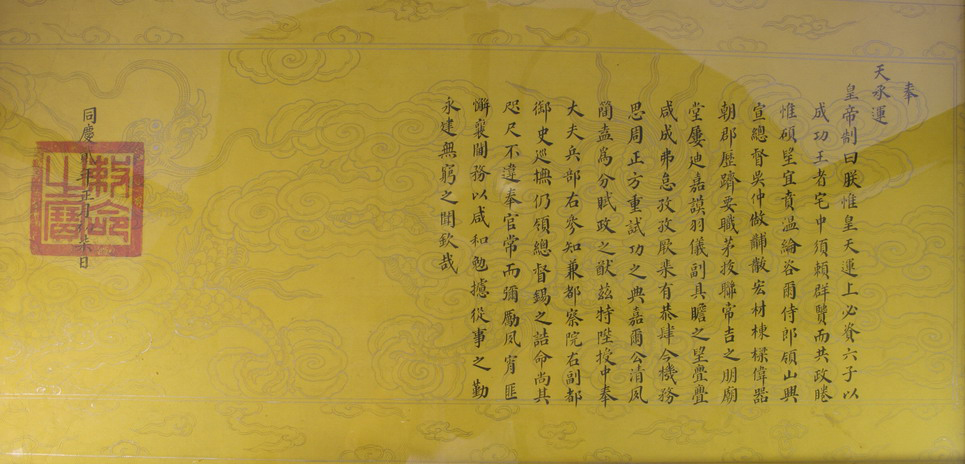 奉
天承運
皇帝制曰朕惟皇天運上必資六子以
成功王者宅中須賴群賢而共政睠
惟碩望宜賁溫綸咨爾侍郎領山興
宣總督吳仲倣黼黻宏材棟樑偉器
朝郡歷躋要職茅拔聯常吉之朋廟
堂屢迪嘉謨羽儀副具瞻之望亹亹
咸成弗怠孜孜厥棐有恭肆今機務
思周正方重試功之典嘉爾公清夙
簡盍爲分賦政之猷茲特陞授中奉
大夫兵部右參知兼都察院右副都
御史巡撫仍領總督錫之誥命尚其
咫尺不違奉官常而彌勵夙宵匪
懈襄閫務以咸和勉攄從事之勤
永建無窮之閒欽哉
同慶年正月柒日
敕命之寶